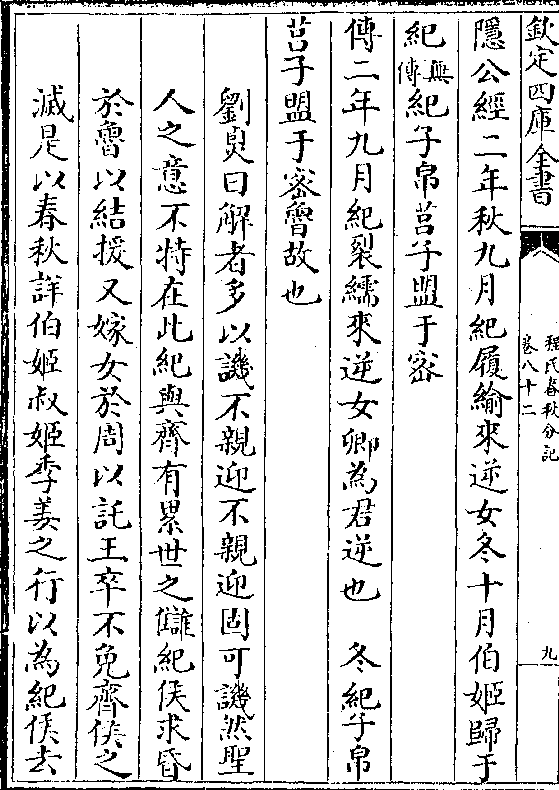 欽定四庫全書
程氏春秋分記
卷八十二
九
隱公經二年秋九月紀履緰來逆女冬十月伯姬歸于
紀無傳紀子帛莒子盟于密
傳二年九月紀裂繻來逆女卿為君逆也　冬紀子帛
莒子盟于密魯故也
劉炫曰解者多以譏不親迎不親迎固可譏然聖
人之意不特在此紀與齊有累世之讎紀侯求昏
於魯以結援又嫁女於周以託王卒不免齊侯之
滅是以春秋詳伯姬叔姬季姜之行以為紀侯去